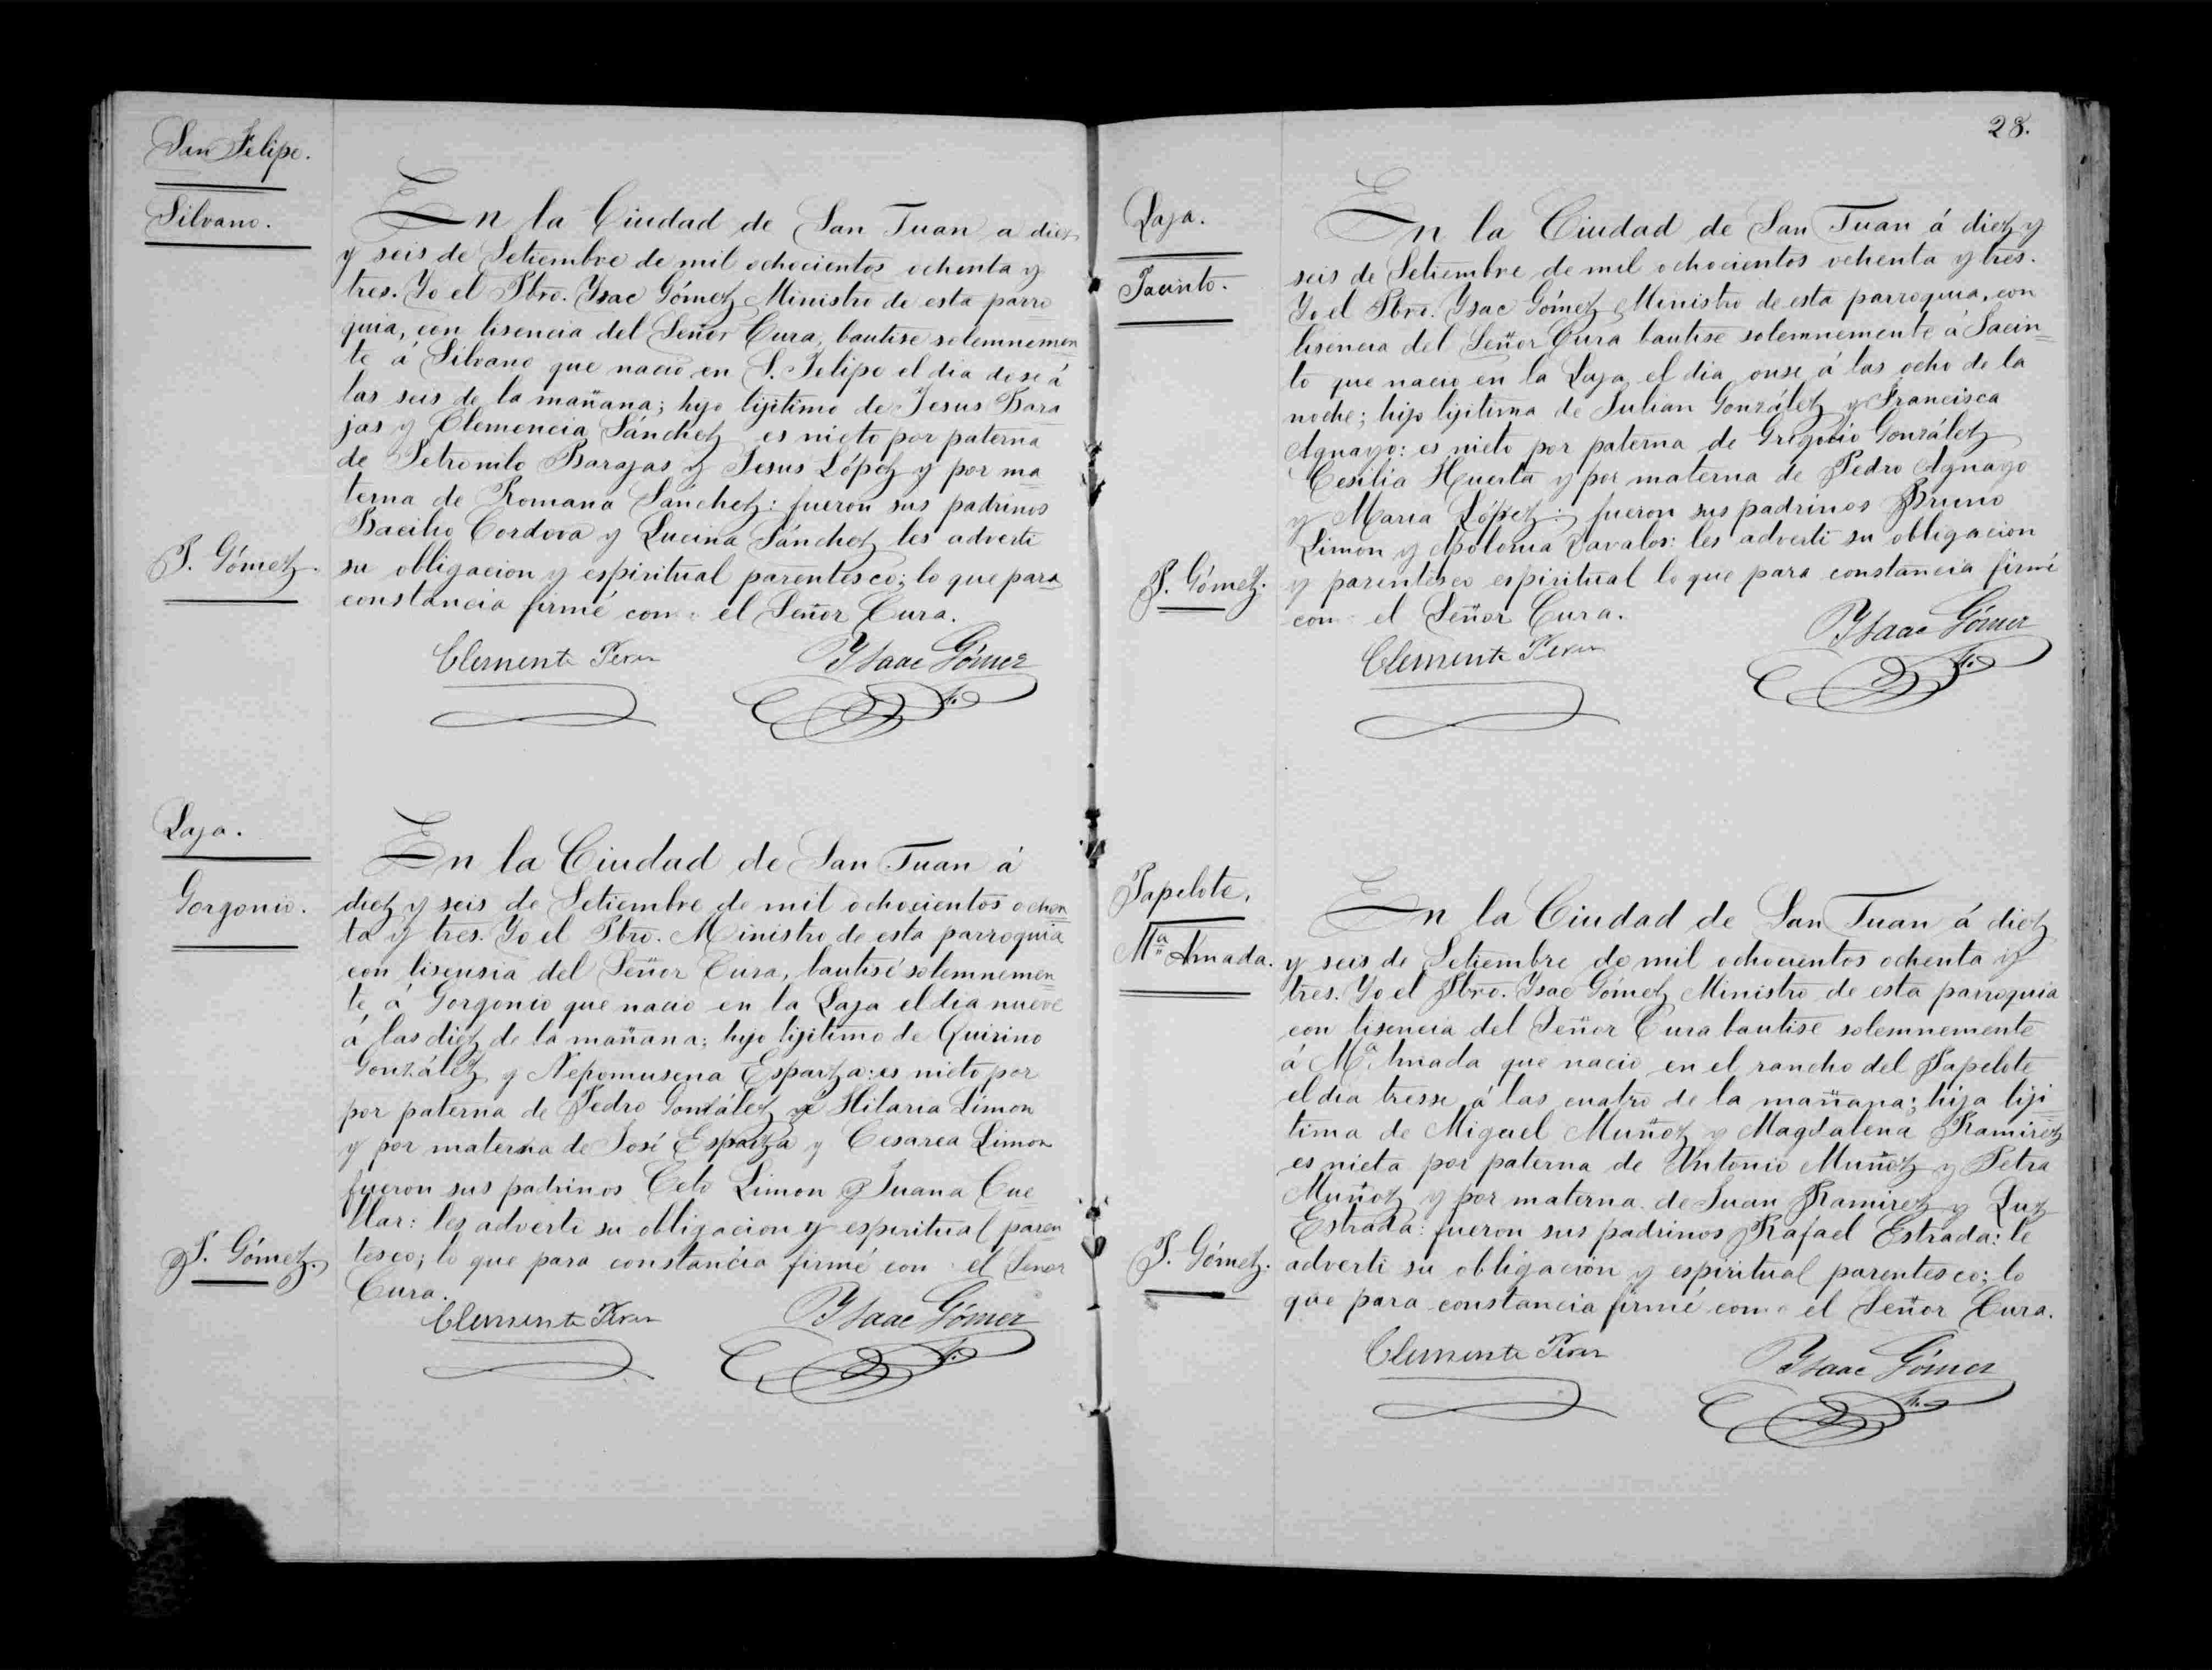 San Felipe.
Silvano.
En la Ciudad de San Juan a diez
y seis de Setiembre de mil ochocientos ochenta y
tres. Yo el Pbro. Ysac Gómez Ministro de esta parro
quia, con lisencia del Señor Cura, bautise solemnemen
te á Silvano que nacio en S. Felipe el dia dose á
las seis de la mañana; hijo lijitimo de Jesus Bara
jas y Clemencia Sánchez es nieto por paterna
de Petronilo Barajas y Jesus López y por ma
terna de Romana Sánchez: fueron sus padrinos
Bacilio Cordova y Lucina Sánchez les adverti
P. Gómez.
su obligacion y espiritual parentesco; lo que para
constancia firmé con el Señor Cura.
Clemente Ysaac Gómez
Laja.
Gorgonio.
En la Ciudad de San Juan á
diez y seis de Setiembre de mil ochocientos ochen
ta y tres. Yo el Pbro. Ministro de esta parroquia
con lisensia del Señor Cura, bautisé solemnemen
te, á Gorgonio que nacio en la Laja el dia nueve
á las diez de la mañana; hijo lijitimo de Quirino
González y Nepomusena Esparza: es nieto por
por paterna de Pedro González y Hilaria Limon
y por materna de José Esparza y Cesarea Limon
fueron sus padrinos Celo Limon y Juana Cue
llar: les adverti su obligacion y espiritual paren
P. Gómez.
tesco; lo que para constancia firmé con el Señor
Cura.
Clemente Ysaac Gómez
28.
Laja.
Jacinto.
En la Ciudad de San Juan á diez y
seis de Setiembre de mil ochocientos ochenta y tres.
Yo el Pbro. Ysac Gómez Ministro de esta parroquia, con
lisencia del Señor Cura bautise solemnemente á Jacin
to que nacio en la Laja el dia onse á las ocho de la
noche; hijo lijitima de Julian González y Francisca
Aguayo: es nieto por paterna de Gregorio González
Cesilia Huerta y por materna de Pedro Aguayo
y Maria López: fueron sus padrinos Bruno
Limon y Apolonia Davalos: les adverti su obligacion
P. Gómez.
y parentesco espiritual lo que para constancia firmé
con el Señor Cura.
Clemente Ysaac Gómez
Papelote.
Mª Amada.
En la Ciudad de San Juan á diez
y seis de Setiembre de mil ochocientos ochenta y
tres. Yo el Pbro. Ysac Gómez Ministro de esta parroquia
con lisencia del Señor Cura bautise solemnemente
á Mª Amada que nacio en el rancho del Papelote
el dia tresse á las cuatro de la mañana; hija liji
tima de Miguel Muñoz y Magdalena Ramirez
es nieta por paterna de Antonio Muñoz y Petra
Muñoz y por materna de Juan Ramirez y Luz
Estrada: fueron sus padrinos Rafael Estrada: le
P. Gómez.
adverti su obligacion y espiritual parentesco; lo
que para constancia firmé con el Señor Cura.
Clemente Ysaac Gómez